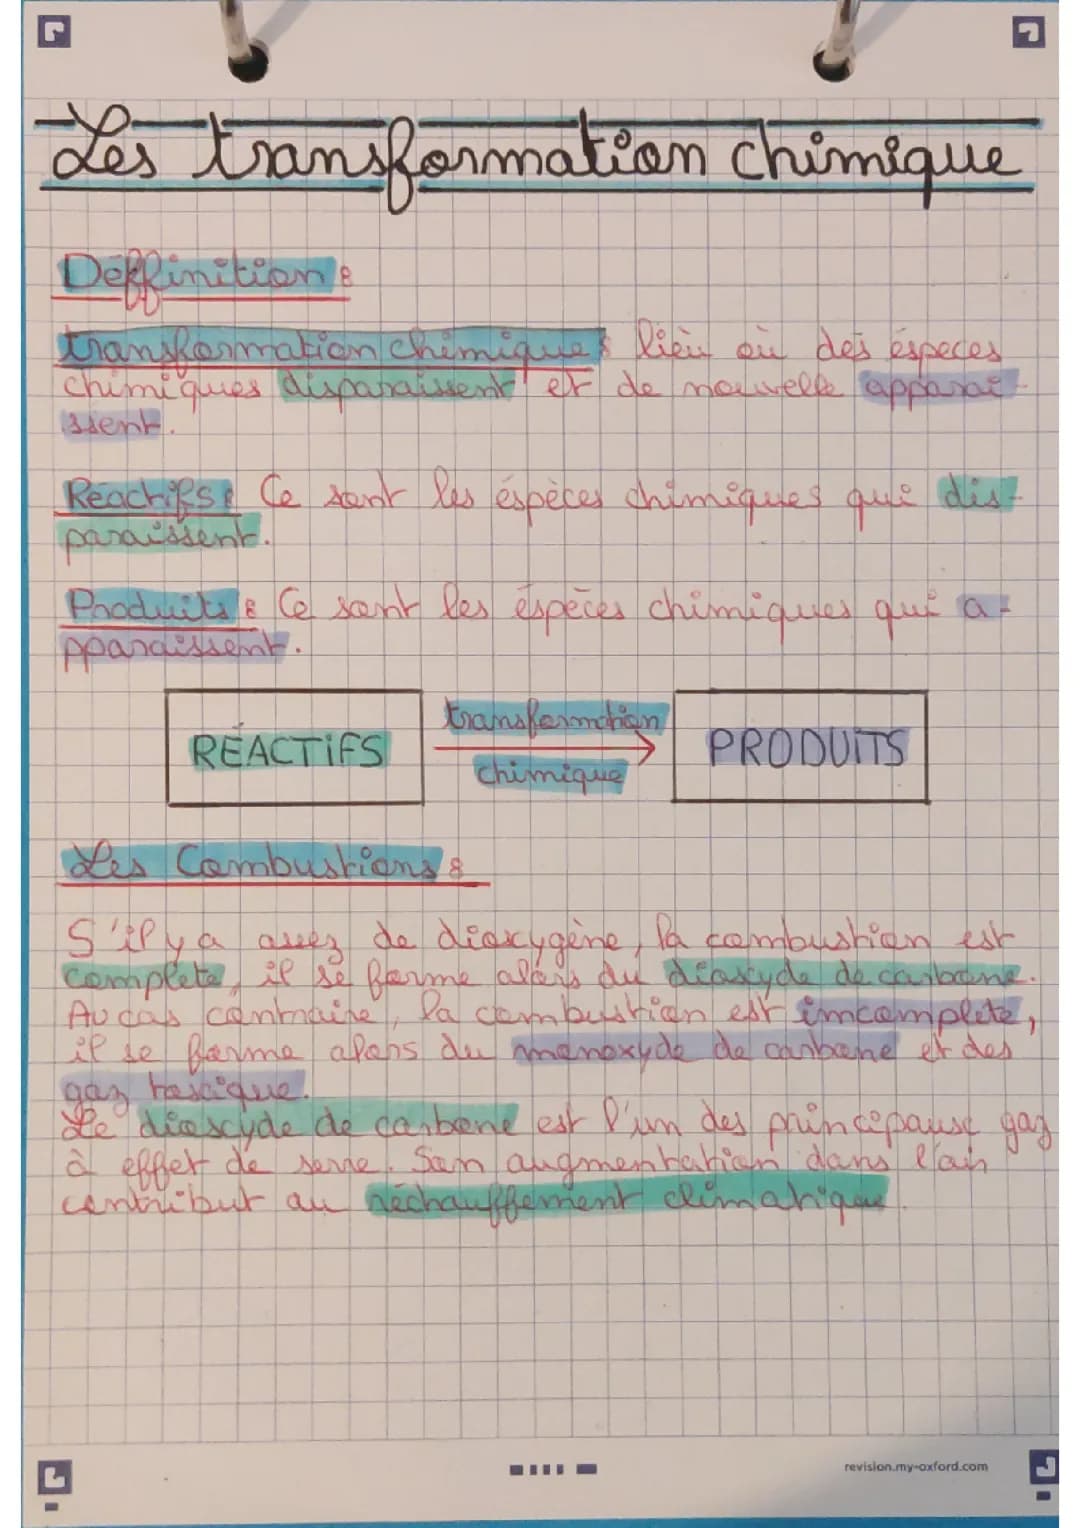 Les transformation chimique
Déffinition :
transformation chimique : lieu où des éspeces
chimiques disparaissent et de nouvelle apparai-
ssent.
Réactifs : Ce sont les éspèces chimiques qui dis-
paraissent.
Produits : Ce sont les éspèces chimiques qui a-
pparaissent.
RÉACTiFS
transformation
chimique
PRODUiTS
Les Combustions :
S'il y a assez de dioxygène, la combustion est
complete, il se forme alors du dioxyde de carbone.
Au cas contraire, la combustion est imcomplete,
il se forme alors du monoxyde de carbone et des
gaz toxique.
Le dioxyde de carbone est l'un des principaux gaz
à effet de serre. Son augmentation dans l'air
contribut au réchauffement climatique.
revision.my-oxford.com